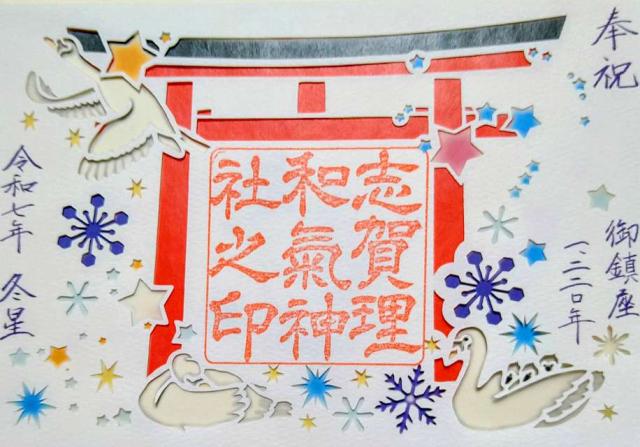 奉祝
御鎮座
一、二二〇年
志賀理
和氣神
社之印
令和七年 冬星